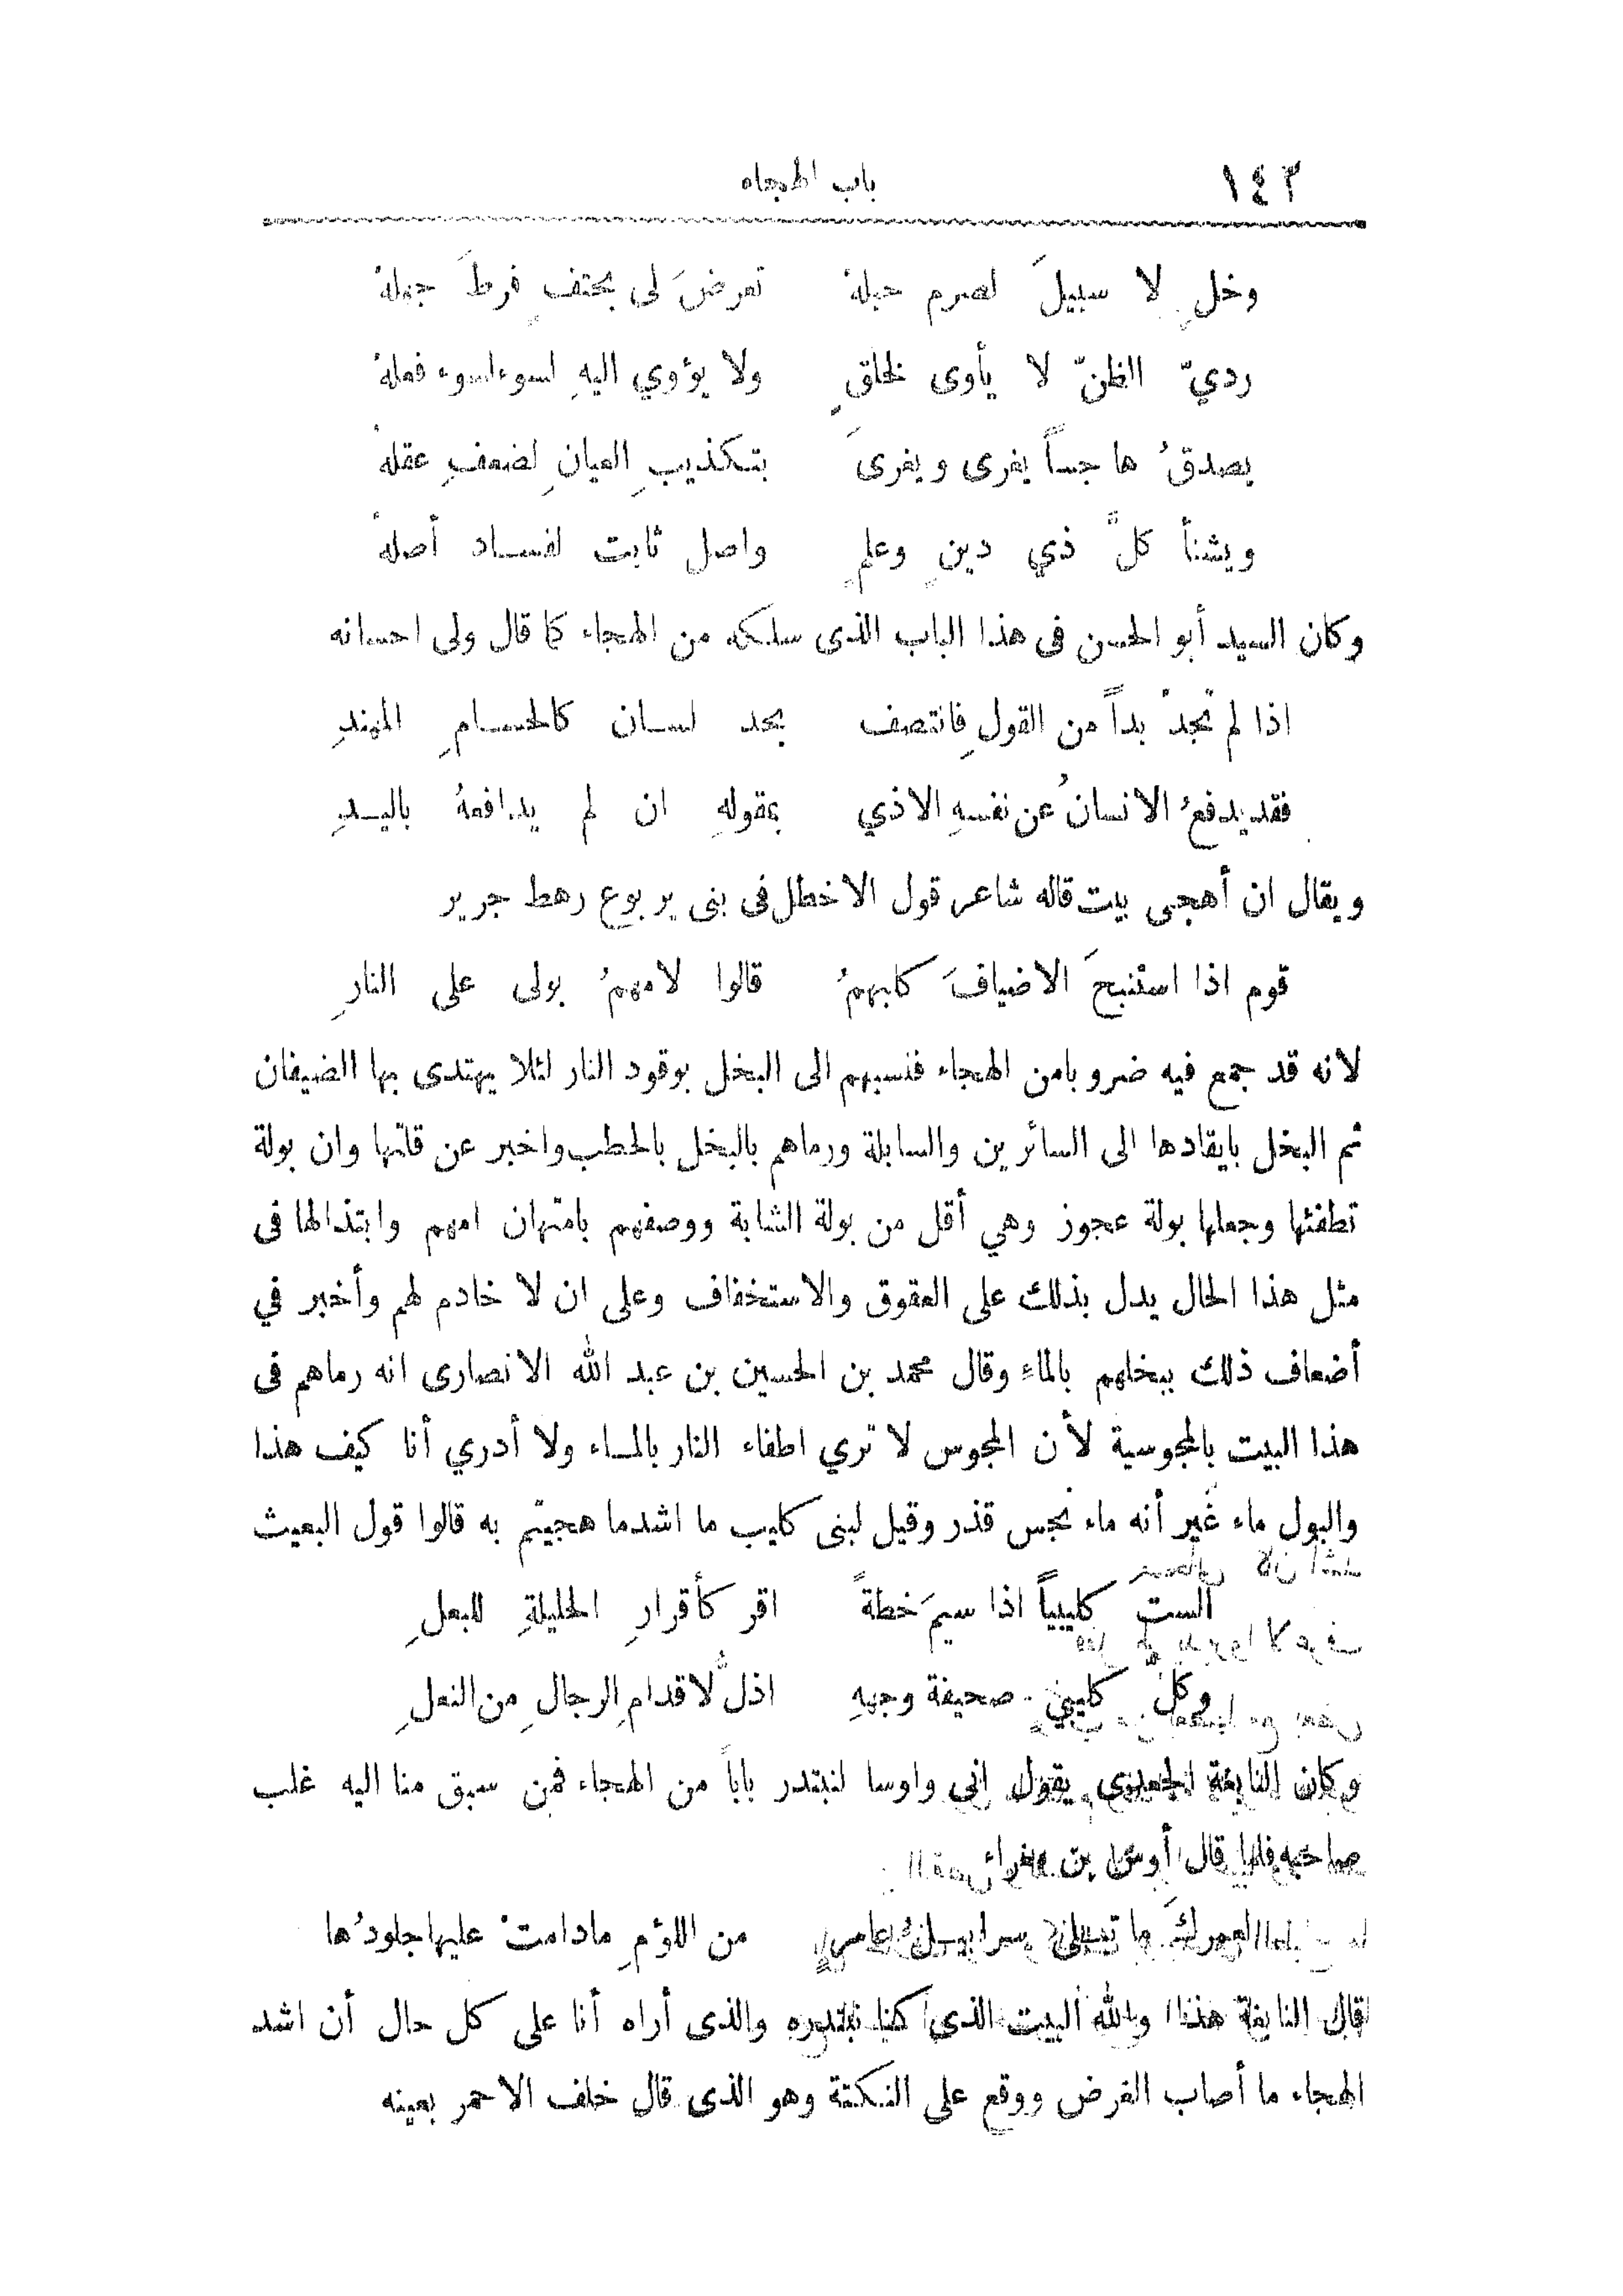 ١٤٢ باب الهجاء
وخلٍ لا سبيلَ لصرم حبلهْ تعرضَ لى بحتفٍ فرطَ جهلهْ
رديّ الظنّ لا يأوى لخلقٍ ولا يؤوي اليهِ لسوء فعلهْ
يصدقُ هاجساً يغرى ويغرى بتكذيبِ العيانِ لضعفِ عقلهْ
ويشنأ كلَّ ذي دينٍ وعلمٍ واصل ثابت لفساد أصلهْ
وكان السيد أبو الحسن فى هذا الباب الذى سلكه من الهجاء كما قال ولى احسانه
اذا لم تجدْ بداً من القولِ فانتصف بحد لسان كالحسامِ المهندِ
فقد يدفعُ الانسانُ عن نفسهِ الاذي بمقولهِ ان لم يدافعهُ باليدِ
ويقال ان أهجى بيت قاله شاعر قول الاخطل فى بنى يربوع رهط جرير
قوم اذا استنبحَ الاضيافَ كلبهمُ قالوا لامهمُ بولى على النارِ
لانه قد جمع فيه ضروبا من الهجاء فنسبهم الى البخل بوقود النار لئلا يهتدى بها الضيفان
ثم البخل بايقادها الى السائرين والسابلة ورماهم بالبخل بالحطب واخبر عن قلتها وان بولة
تطفئها وجعلها بولة عجوز وهي أقل من بولة الشابة ووصفهم بامتهان امهم وابتذالها فى
مثل هذا الحال يدل بذلك على العقوق والاستخفاف وعلى ان لا خادم لهم وأخبر في
أضعاف ذلك ببخلهم بالماء وقال محمد بن الحسين بن عبد الله الانصارى انه رماهم فى
هذا البيت بالمجوسية لأن المجوس لا تري اطفاء النار بالماء ولا أدري أنا كيف هذا
والبول ماء غير أنه ماء نجس قذر وقيل لبنى كليب ما اشد ما هجيتم به قالوا قول البعيث
الست كليبياً اذا سيمَ خطةً اقر كأقرارِ الحليلةِ للبعلِ
وكلُّ كليبيٍ صحيفة وجههِ اذلُّ لاقدامِ الرجالِ من النعلِ
وكان النابغة الجعدى يقول انى واوسا لنبتدر باباً من الهجاء فمن سبق منا اليه غلب
صاحبه فلما قال أوس بن مغراء
لعمركَ ما تبلى سرابيلُ عامرٍ من اللؤمِ مادامتْ عليها جلودُها
قال النابغة هذا والله البيت الذى كنا نبتدره والذى أراه أنا على كل حال أن اشد
الهجاء ما أصاب الغرض ووقع على النكتة وهو الذى قال خلف الاحمر بعينه